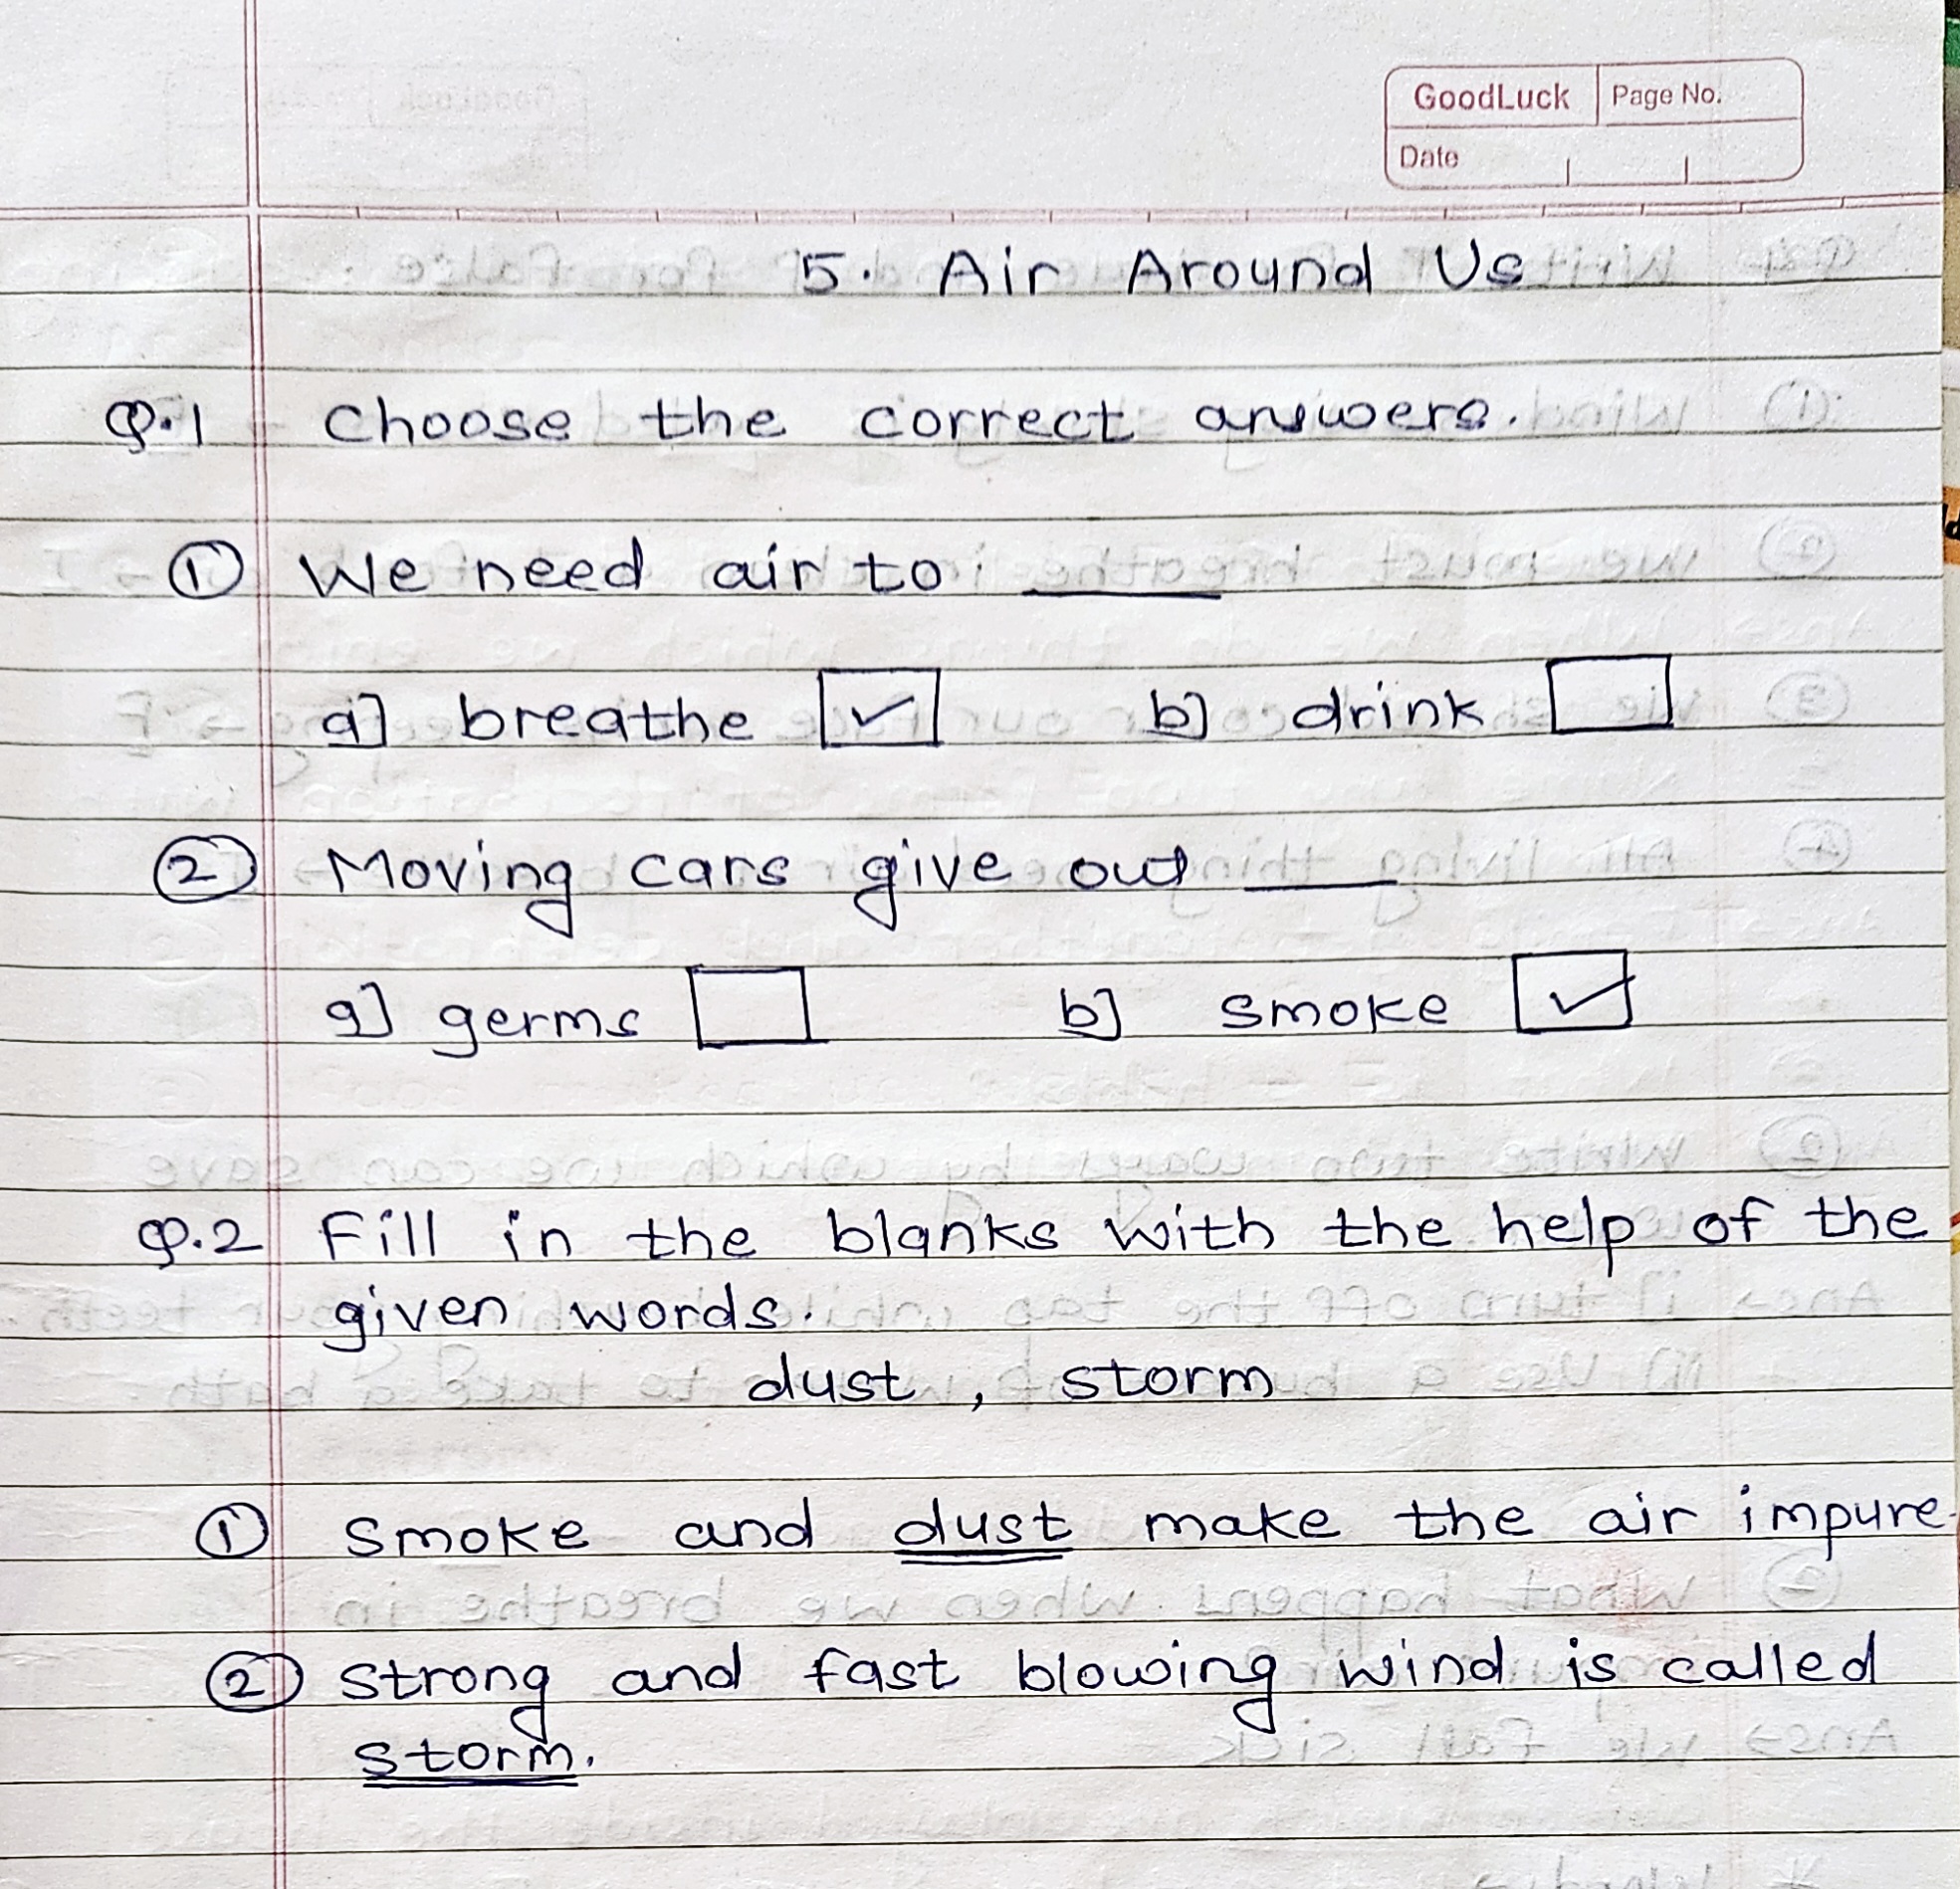 GoodLuck Page No.
Date
5. Air Around Us
Q.1 Choose the correct answers.
① We need air to ____
a] breathe ☑ b] drink ☐
② Moving cars give out ____
a] germs ☐ b] smoke ☑
Q.2 Fill in the blanks with the help of the
given words.
dust , storm
① Smoke and dust make the air impure.
② Strong and fast blowing wind is called
storm.